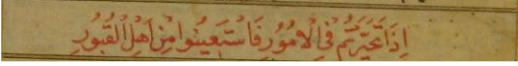 اِذَا تَحَيَّرْتُمْ فِي الْاُمُوُرِ فَاسْتَعِينُوا مِنْ اَهْلِ الْقُبُورِ